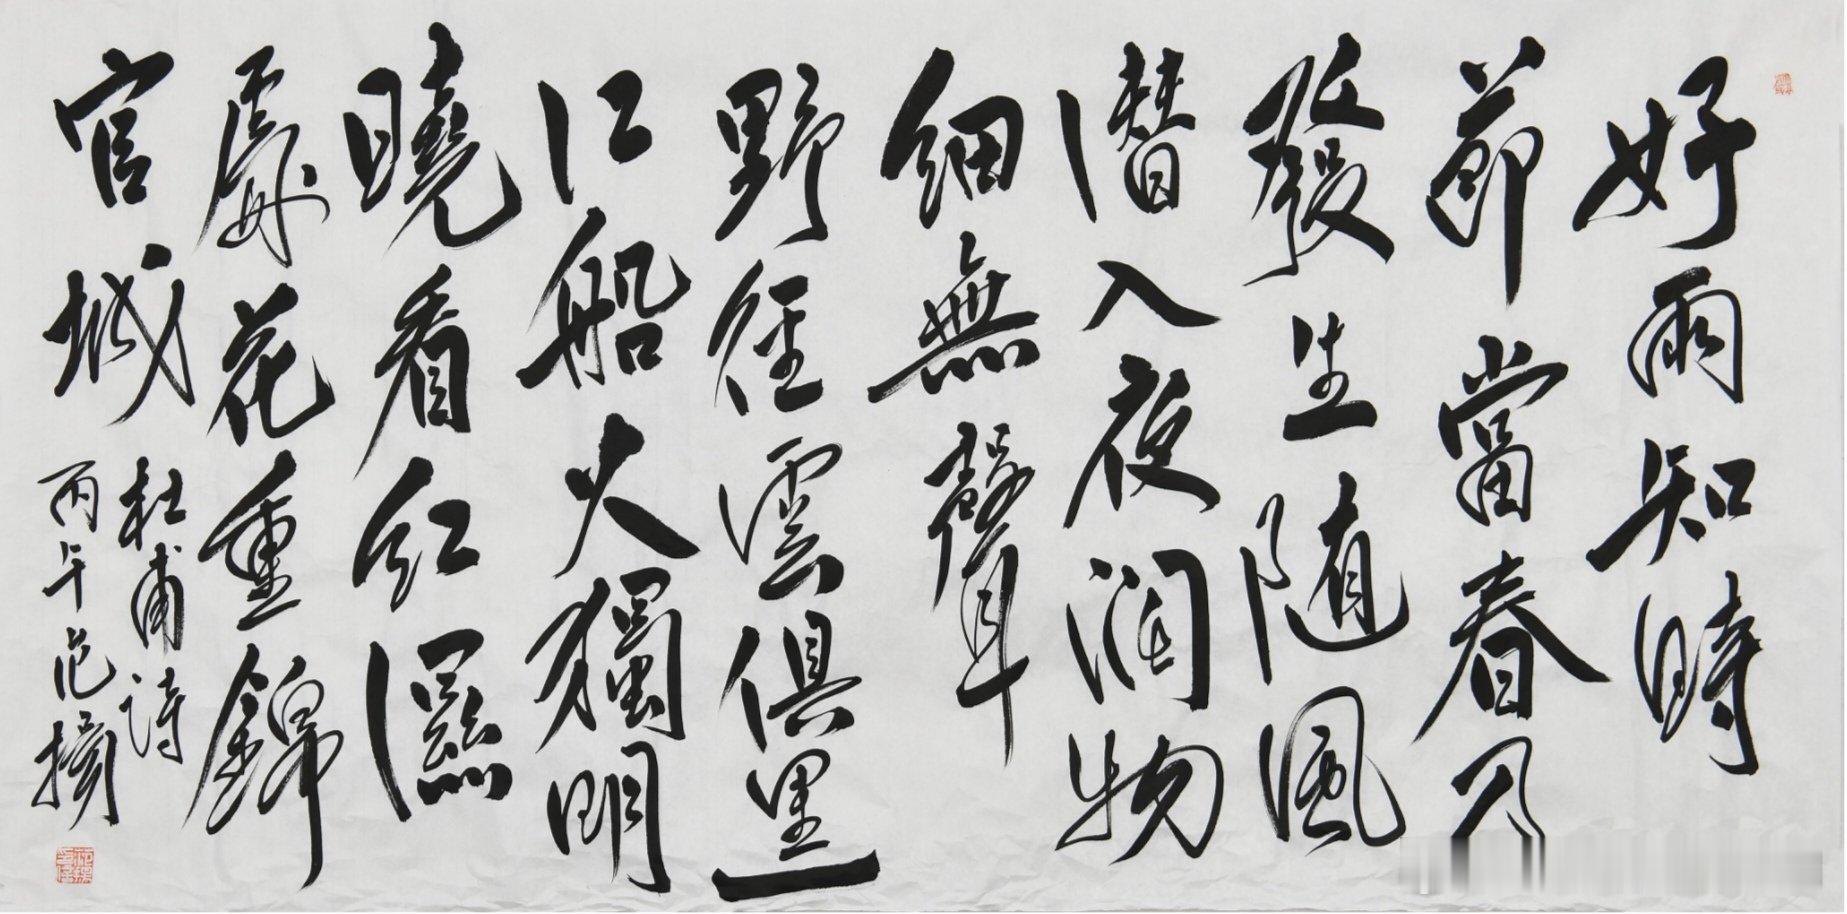 好雨知時
節當春乃
發生随風
潜入夜润物
細無聲
野徑雲俱黑
江船火獨明
曉看紅濕
處花重錦
官城
杜甫诗
丙午